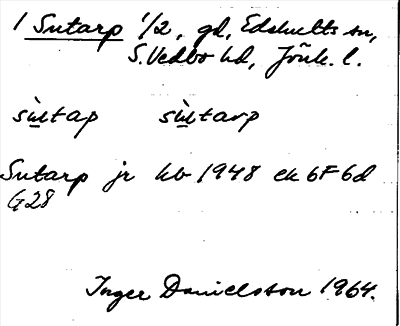 1 Sutarp 1/2, gd, Edshults sn,
S. Vedbo hd, Jönk. l.
sùtap sùtarp
Sutarp jr hb 1948 ek 6F6d
G28
Inger Danielsson 1964.